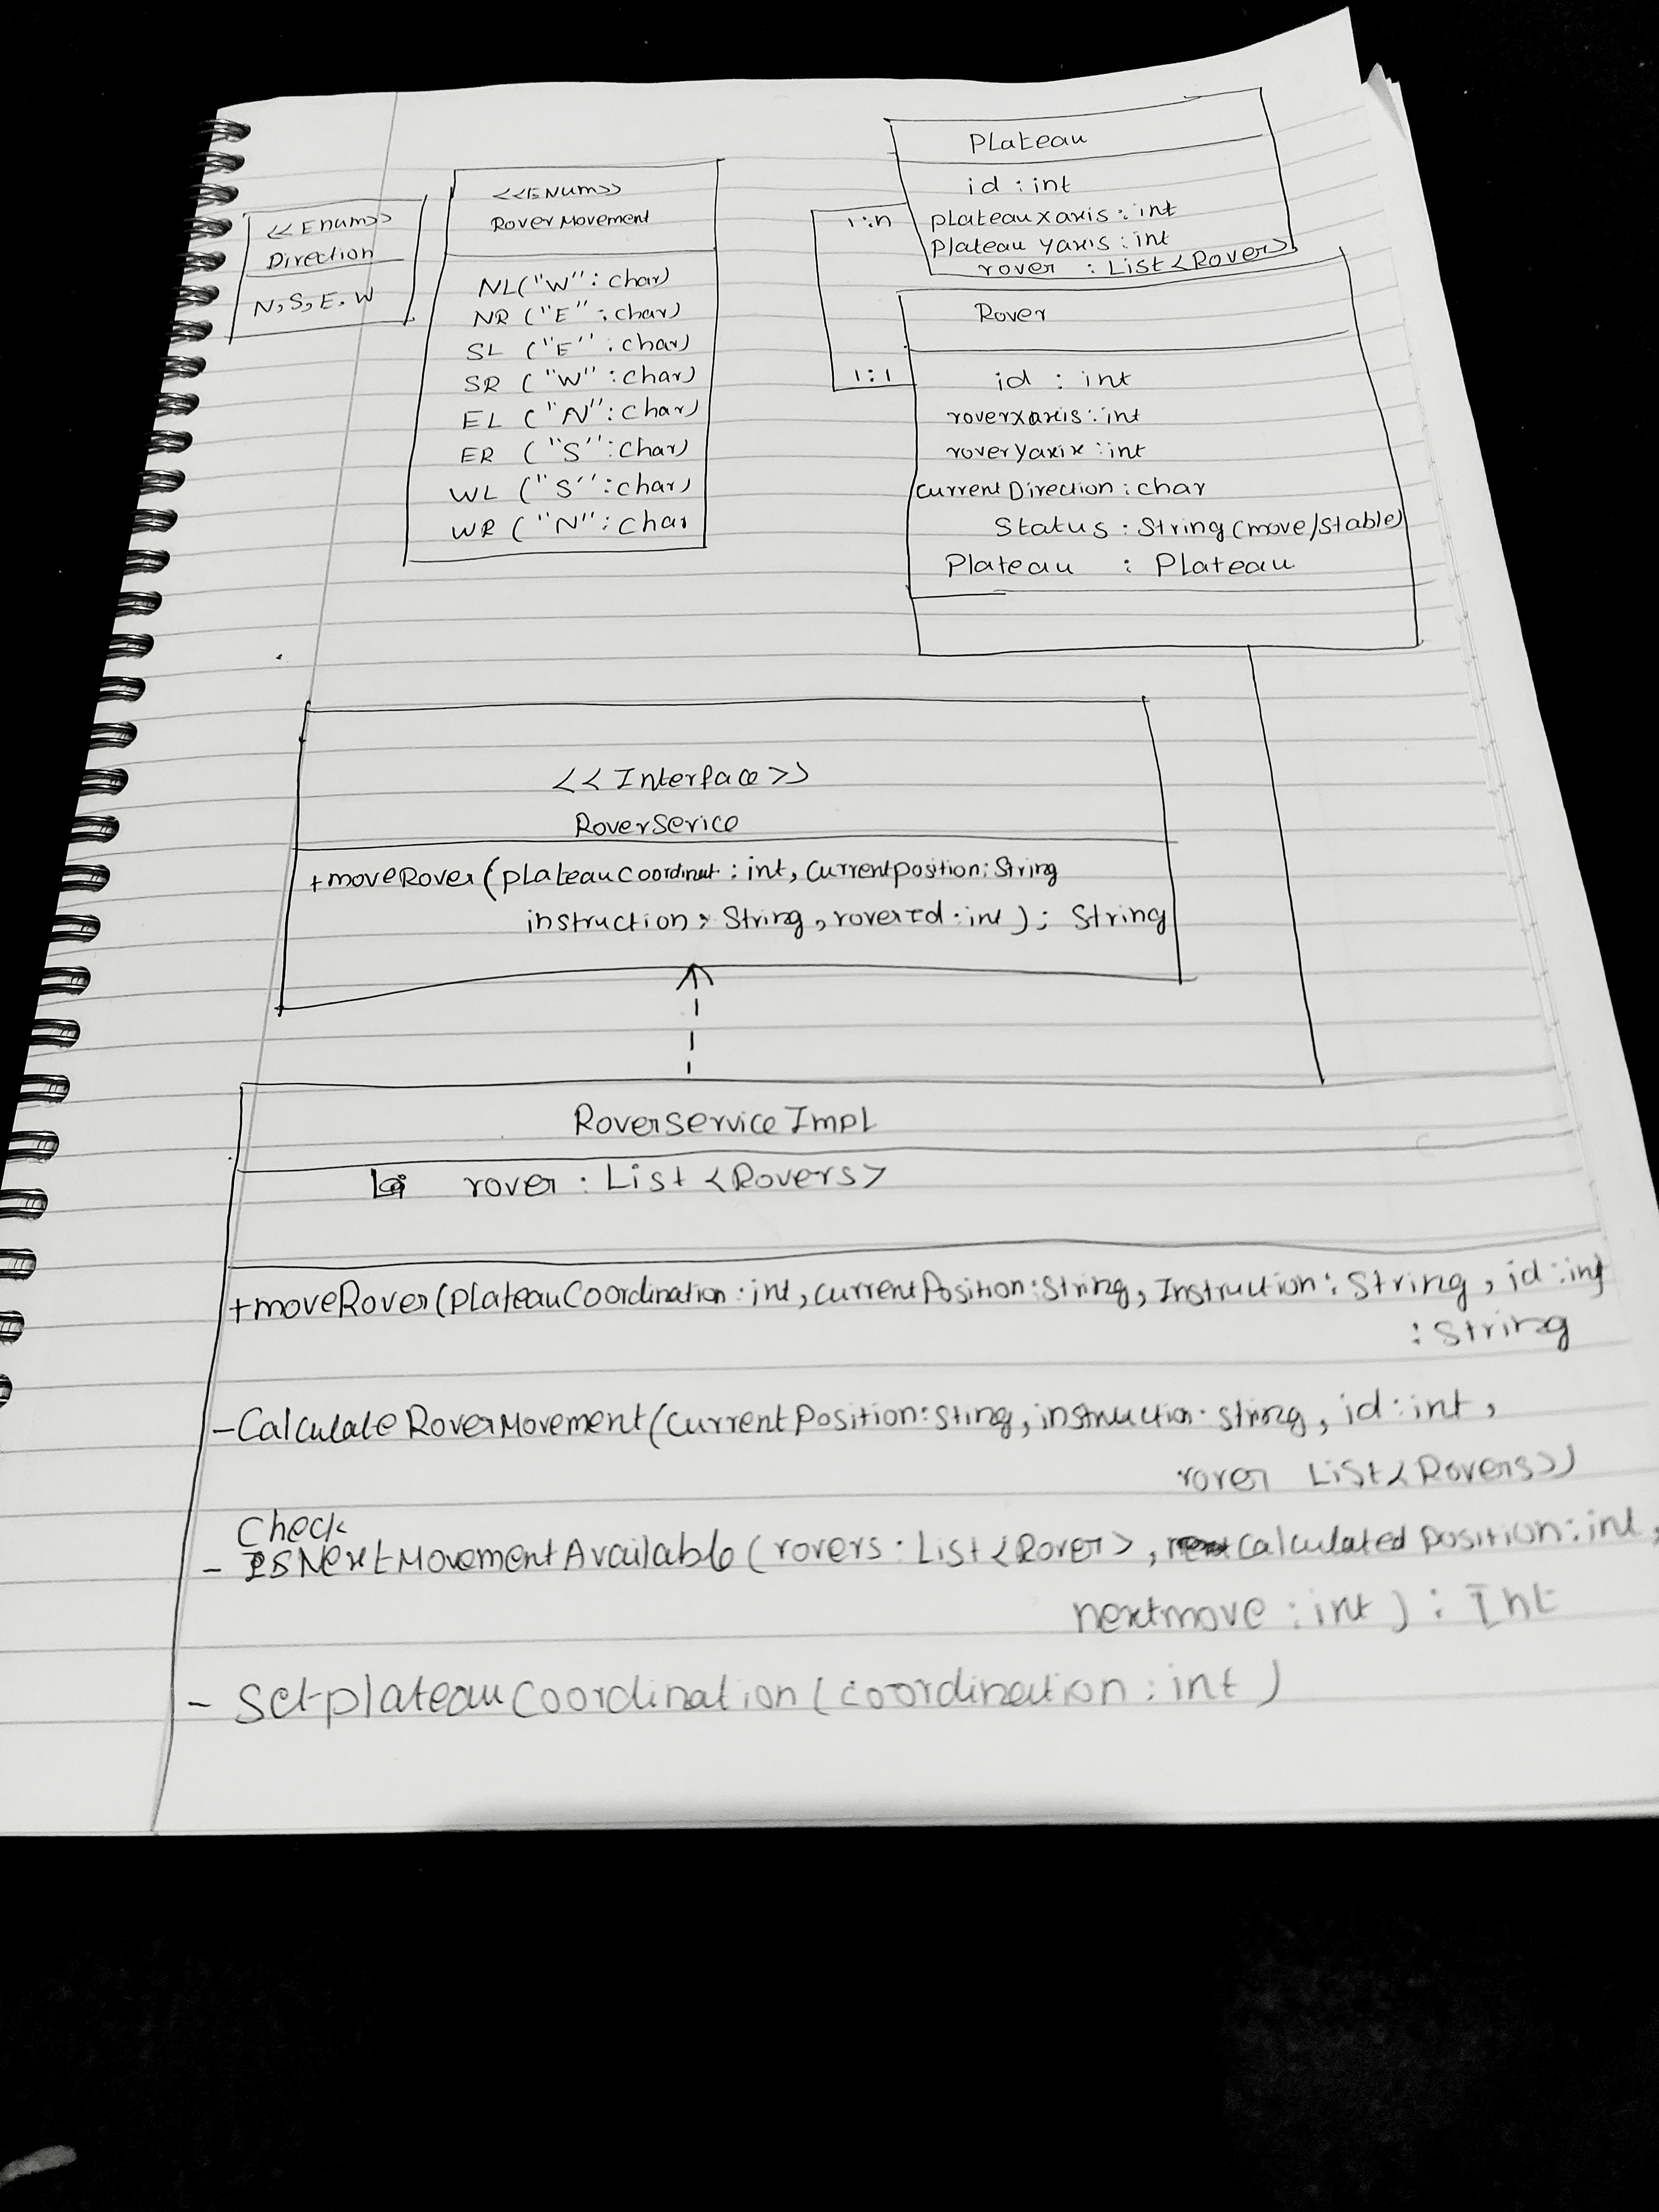 <<Enum>>
Direction
N, S, E, W
<<ENum>>
Rover Movement
NL("W" : char)
NR ("E" : char)
SL ("E" : char)
SR ("W" : char)
EL ("N" : char)
ER ("S" : char)
WL ("S" : char)
WR ("N" : char
Plateau
id : int
plateauxaxis : int
plateau yaxis : int
rover : List<Rover>
1:n
1:1
Rover
id : int
roverxaxis : int
roveryaxix : int
currentDirection : char
Status : String (move/stable)
Plateau : Plateau
<<Interface>>
RoverSerice
+moveRover(plateauCoordinat : int, Currentposition: String
instruction : String, roverId : int) : String
RoverserviceImpl
rover : List <Rovers>
+moveRover(plateauCoordination : int, currentPosition : String, Instruction : String, id : int
: String
-CalculateRoverMovement(CurrentPosition : Sting, instruction : string, id : int,
rover List<Rovers>)
Check
- ISNextMovementAvailable (rovers : List <Rover>, Calculated position : int,
nextmove : int) : Int
- SetplateauCoordination (coordination : int)